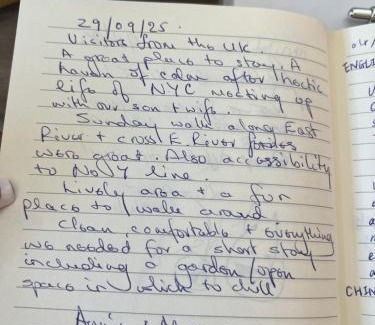 29/09/25.
Visitors from the UK
A great place to stay. A
haven of calm after hectic
life of NYC meeting up
with our son + wife.
Sunday walk along East
River + cross E. River ferries
were great. Also accessibility
to No 7 line.
Lively area + a fun
place to walk around
Clean, comfortable + everything
we needed for a short stay
including a garden/open
space in which to chill
ENGLI
CHIN